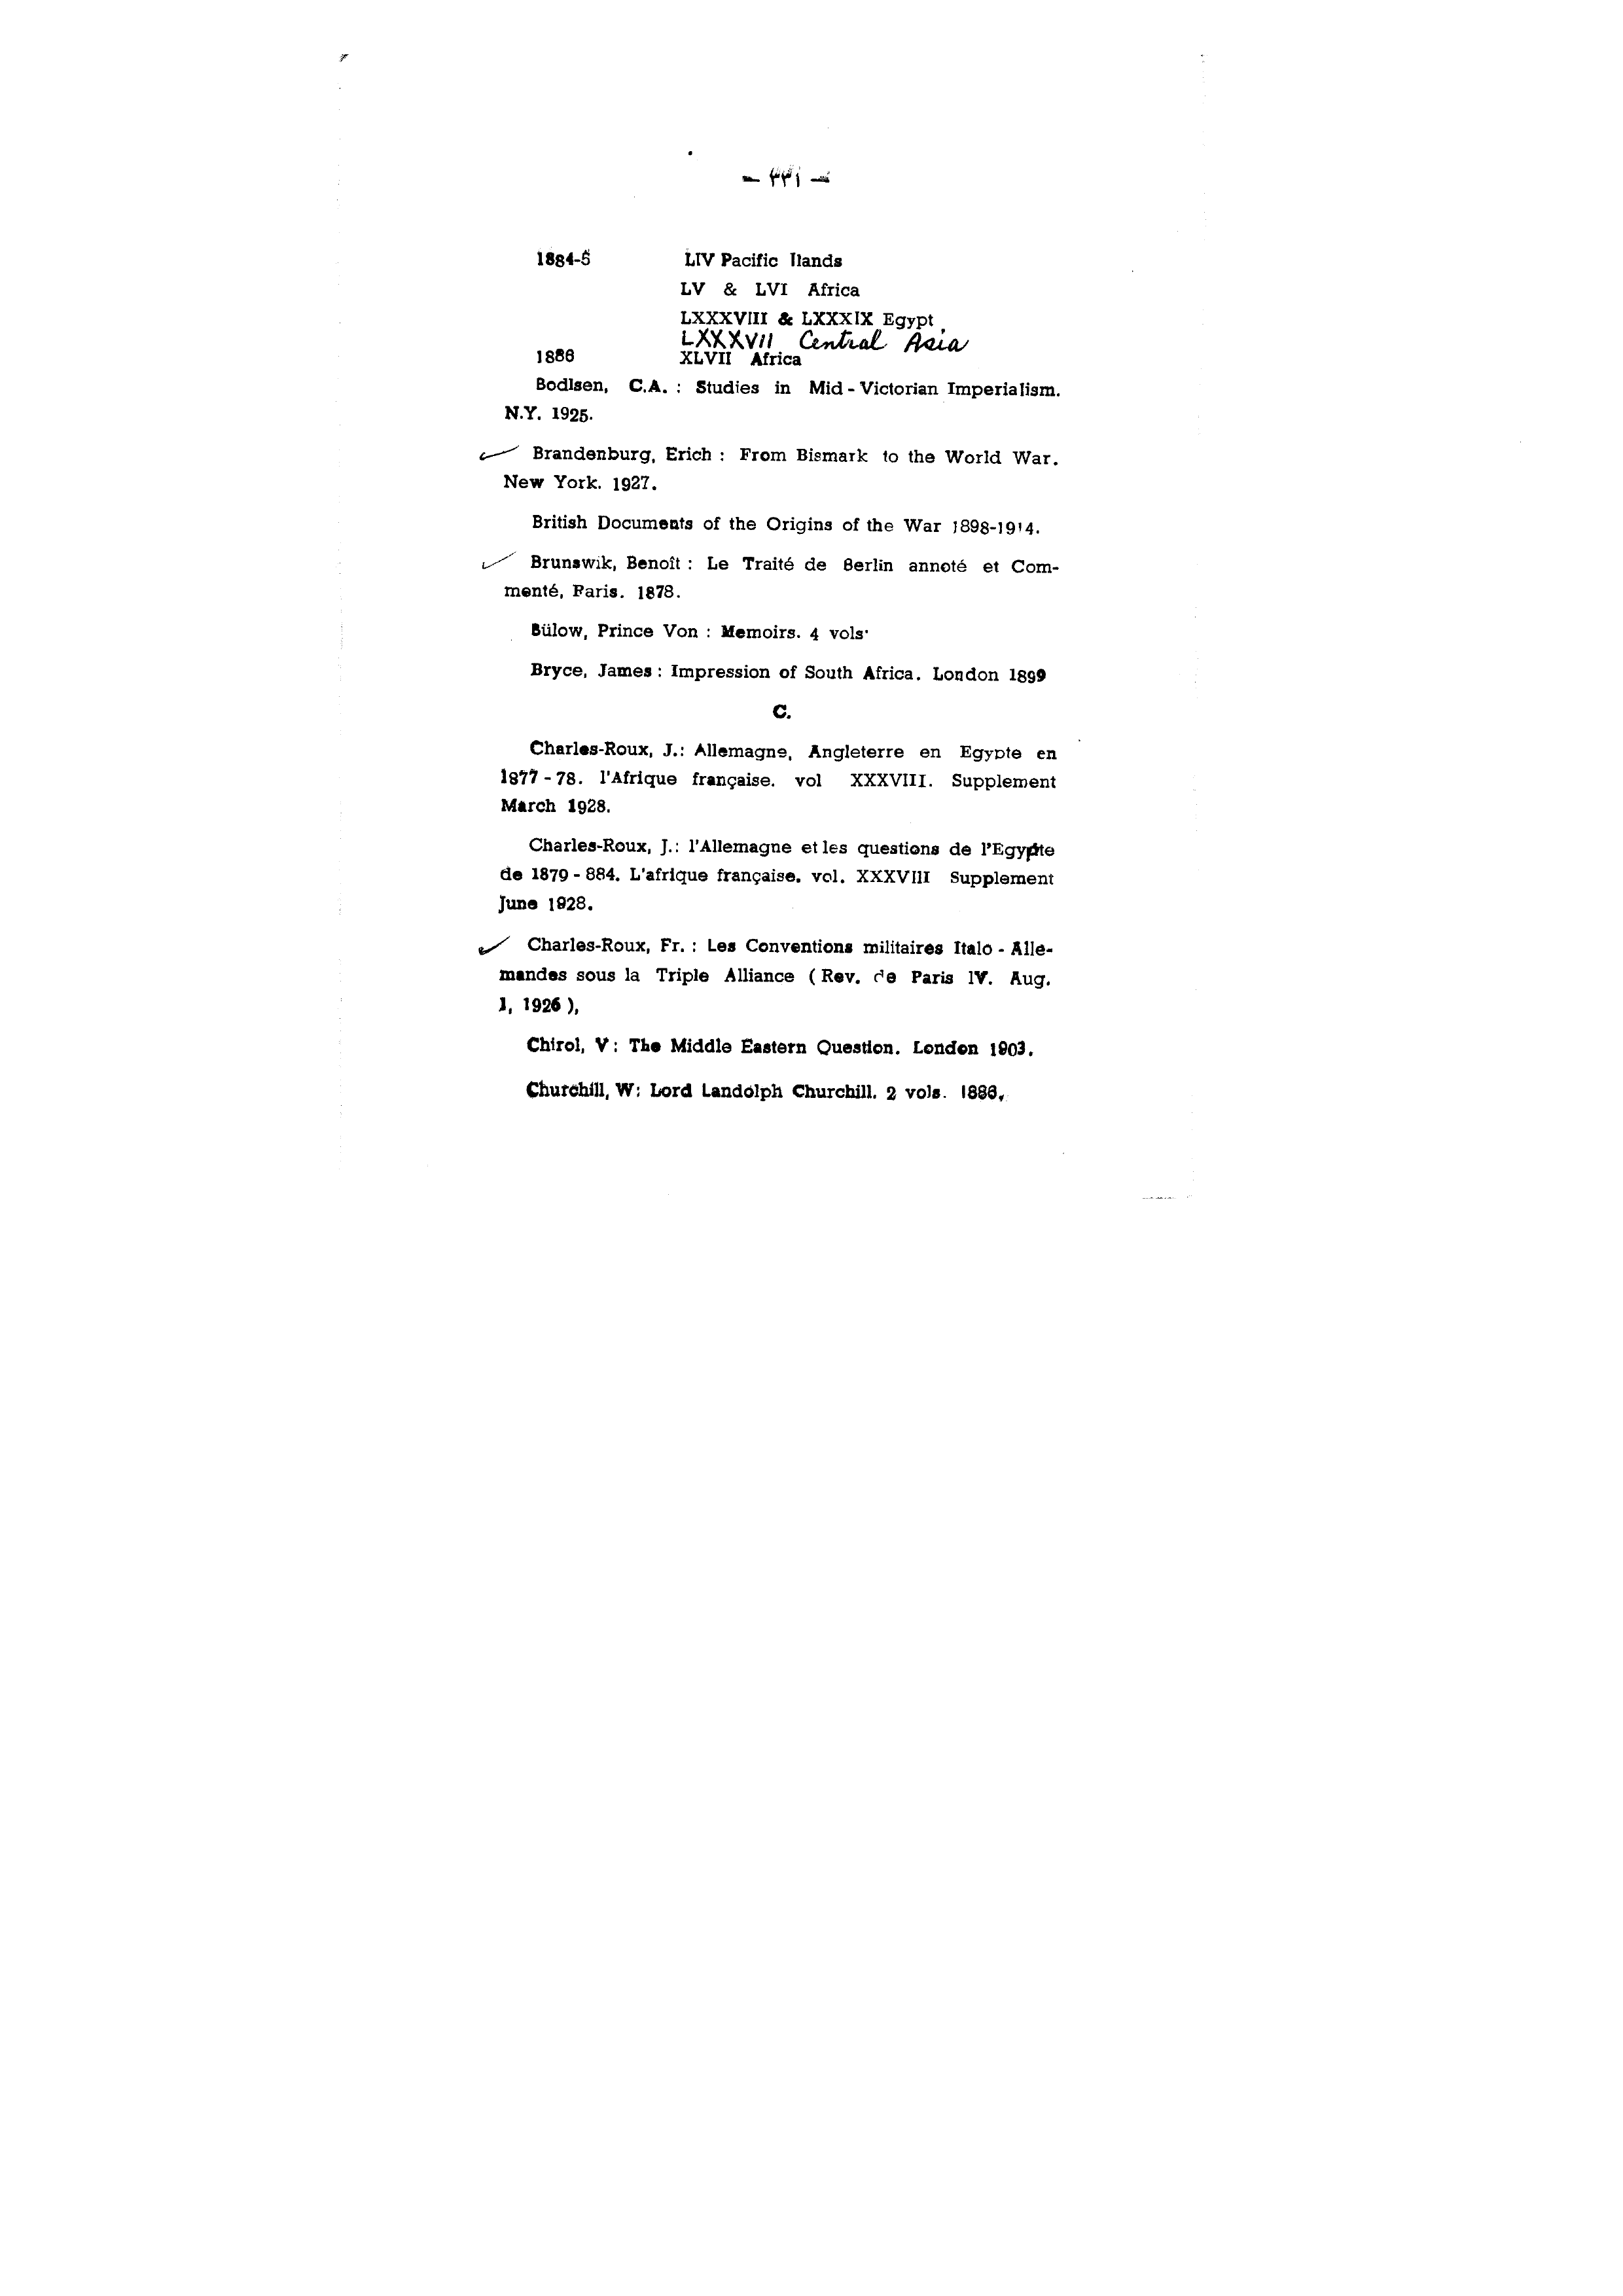 - ٣٣١ -
1884-5 LIV Pacific Ilands
LV & LVI Africa
LXXXVIII & LXXXIX Egypt
LXXXVII Central Asia
1886 XLVII Africa
Bodlsen, C.A. : Studies in Mid - Victorian Imperialism.
N.Y. 1925.
Brandenburg, Erich : From Bismark to the World War.
New York. 1927.
British Documents of the Origins of the War 1898-1914.
Brunswik, Benoît : Le Traité de Berlin annoté et Com-
menté, Paris. 1878.
Bülow, Prince Von : Memoirs. 4 vols.
Bryce, James : Impression of South Africa. London 1899
C.
Charles-Roux, J.: Allemagne, Angleterre en Egypte en
1877 - 78. l'Afrique française. vol XXXVIII. Supplement
March 1928.
Charles-Roux, J.: l'Allemagne et les questions de l'Egypte
de 1879 - 884. L'afrique française. vol. XXXVIII Supplement
June 1928.
Charles-Roux, Fr. : Les Conventions militaires Italo - Alle-
mandes sous la Triple Alliance ( Rev. de Paris IV. Aug.
1, 1926 ),
Chirol, V : The Middle Eastern Question. London 1903.
Churchill, W: Lord Landolph Churchill. 2 vols. 1886.